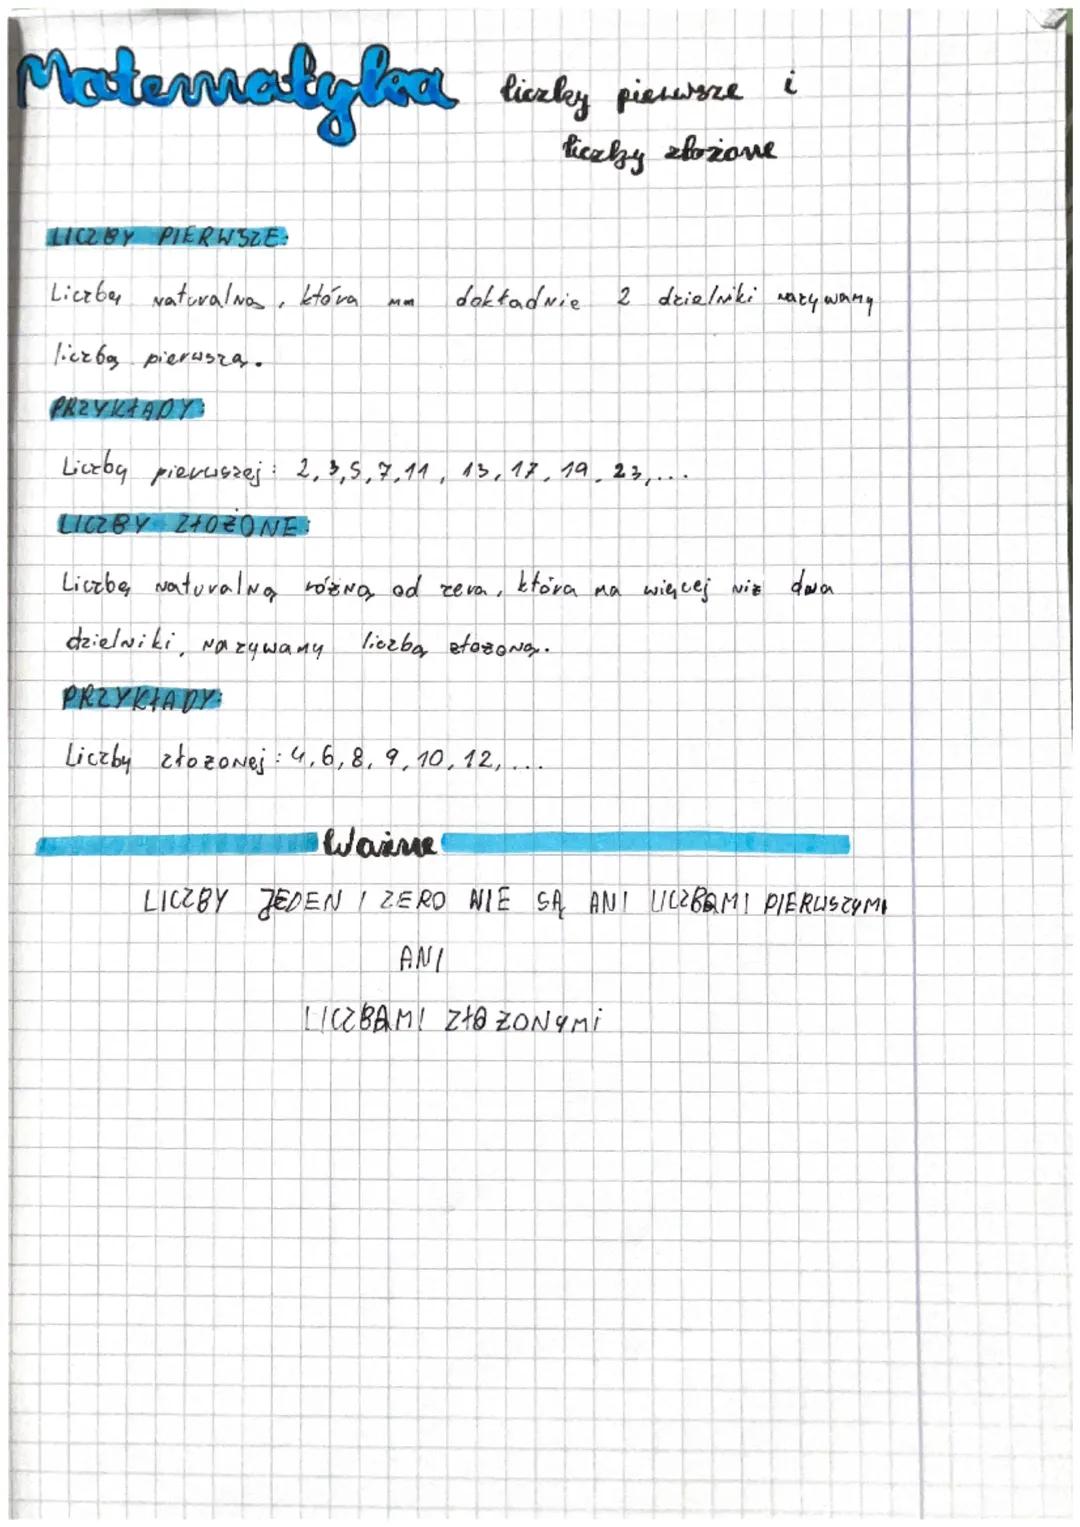 Matematyka liczby pierwsze i
liczby złożone
LICZBY PIERWSZE:
Liczbę naturalną, która ma dokładnie 2 dzielniki nazywamy
liczbą pierwszą.
PRZYKŁADY:
Liczbą pierwszej: 2,3,5,7,11, 13,17,19,23,...
LICZBY ZŁOŻONE:
Liczbę naturalną różną od zera, która ma więcej niż dwa
dzielniki, nazywamy liczbą złożoną.
PRZYKŁADY:
Liczby złożonej: 4,6,8,9,10,12,...
Ważne
LICZBY JEDEN I ZERO NIE SĄ ANI LICZBAMI PIERWSZYMI
ANI
LICZBAMI ZŁOŻONYMi